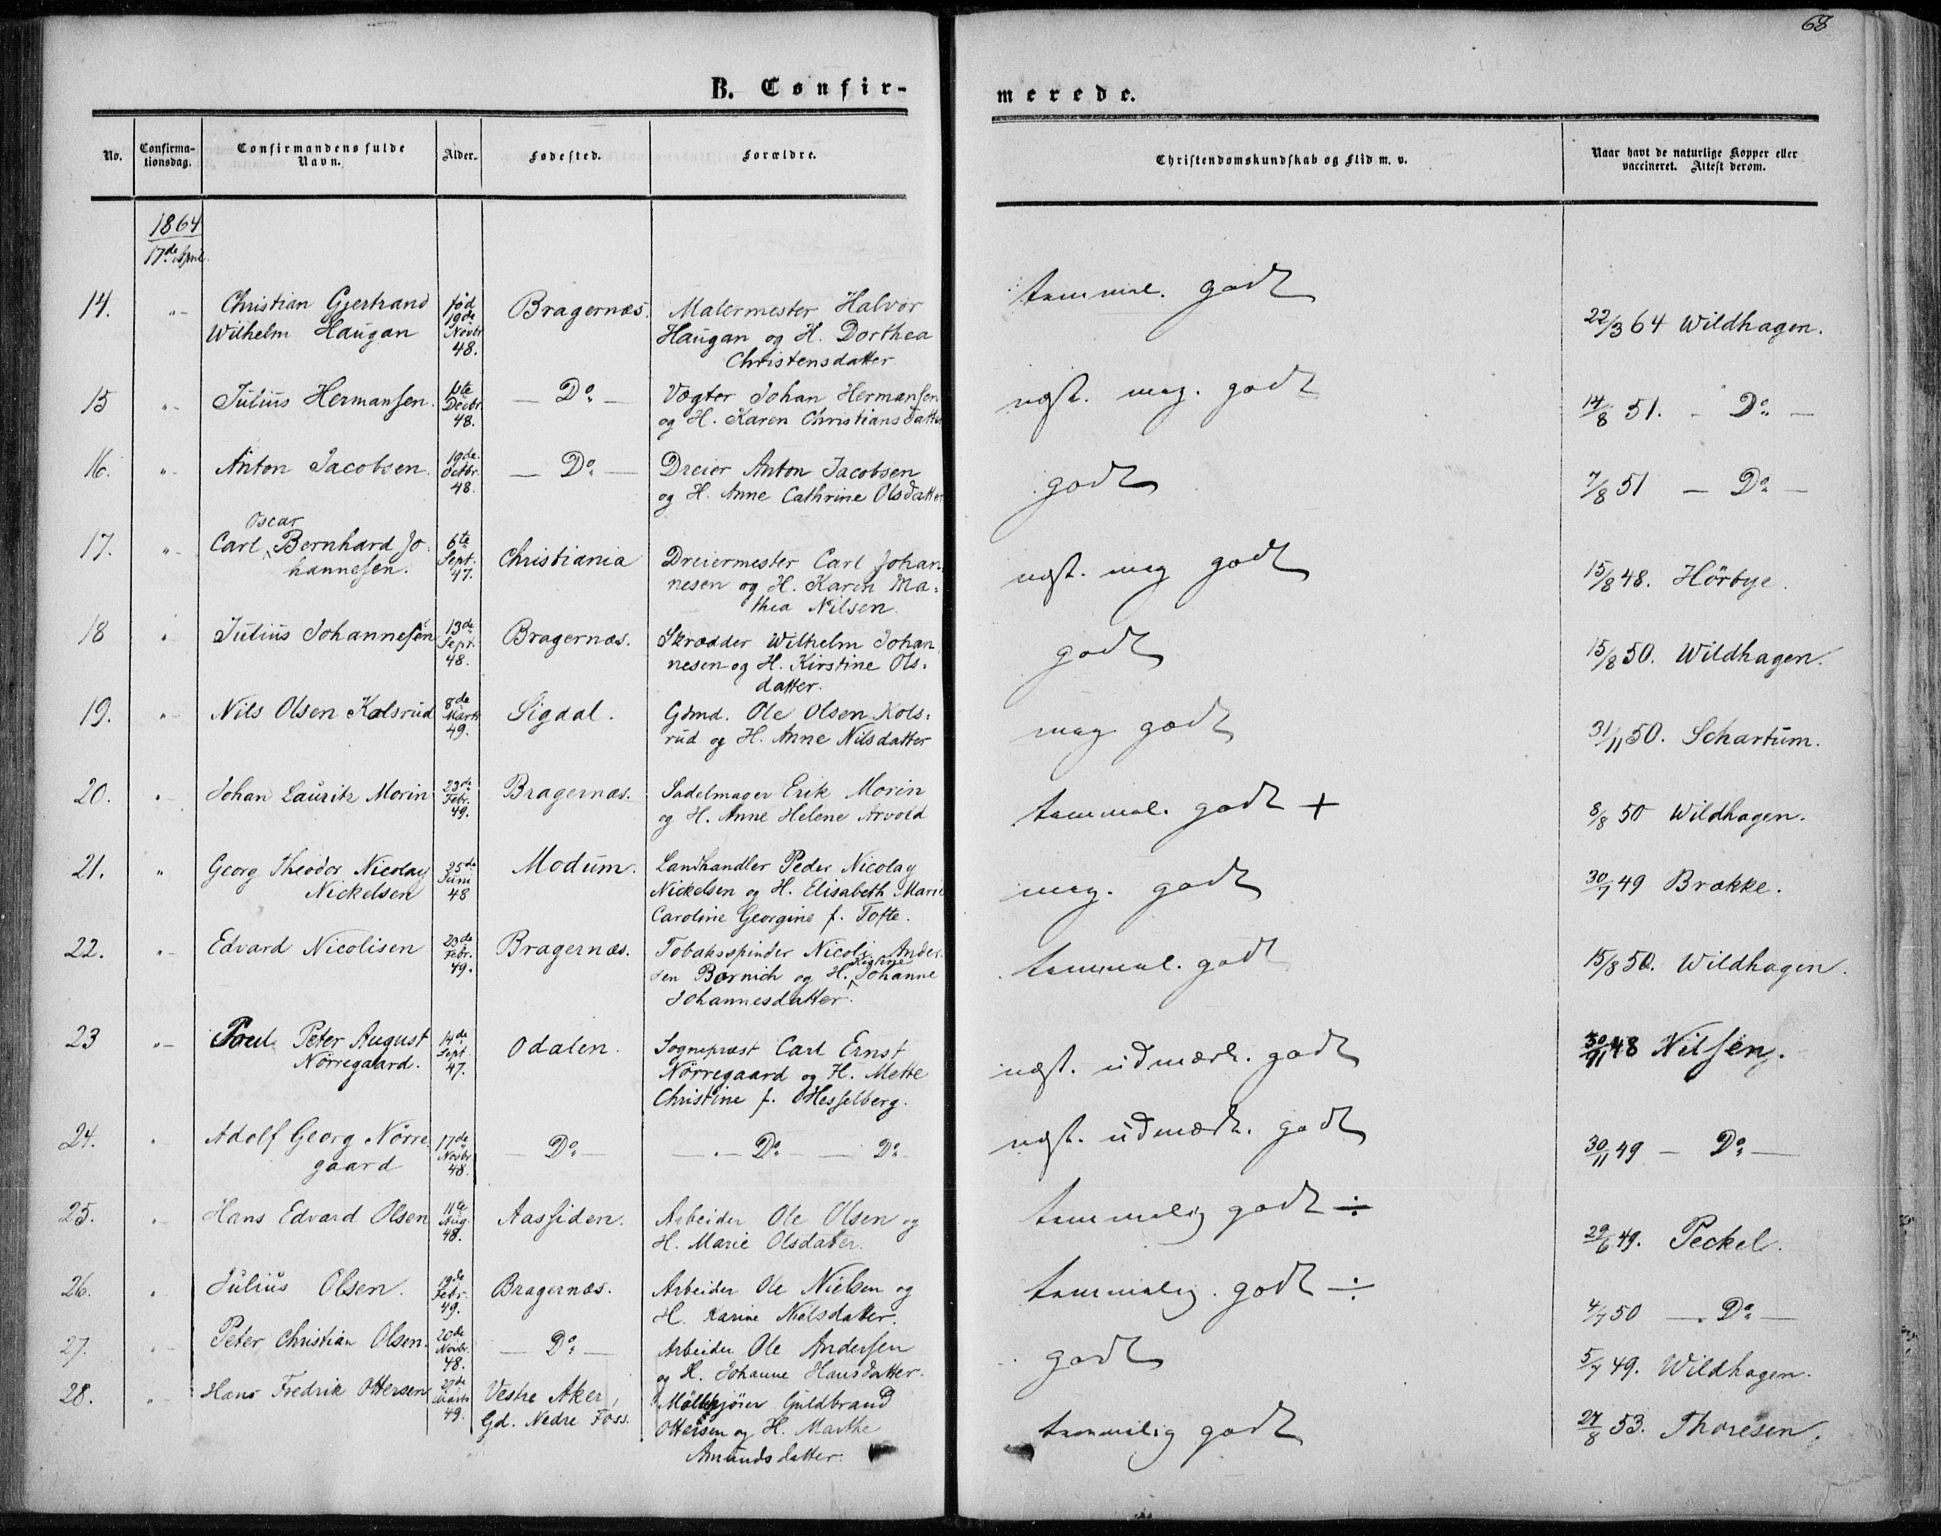 68
B. Confir-
merede.
No.
Confirma-
tionsdag.
Confirmandens fulde
Navn.
Alder.
Fødested.
Forældre.
Christendomskundskab og Flid m. v.
Naar havt de naturlige Kopper eller
vaccineret. Attest derom.
1864
17de April.
14. "- Christian Gjertrand
Wilhelm Haugan
fød
19de
Novbr
48.
Bragernæs.
Malermester Halvor
Haugan og H. Dorthea
Christensdatter
temmel. godt
22/3 64 Wildhagen.
15 "- Julius Hermansen.
Decbr.
48.
— Do —
Vægter Johan Hermansen
og H. Karen Christiansdatter
næst. meg. godt
14/8 51. - Do -
16. "- Anton Jacobsen.
19de
Octbr.
48.
— Do —
Dreier Anton Jacobsen
og H. Anne Cathrine Olsdatter
godt
7/8 51 — Do —
17. "- Carl Oscar Bernhard Jo-
hannesen.
6te
Sept.
47.
Christiania
Dreiermester Carl Johan-
nesen og H. Karen Ma-
thea Nilsen.
næst. meg godt
15/8 48. Hörbye.
18 " Julius Johannesen
13de
Sept.
48.
Bragernæs.
Skrædder Wilhelm Johan-
nesen og H. Kirstine Ols-
datter.
godt
15/8 50. Wildhagen.
19. "- Nils Olsen Kolsrud
8de
Marts
49.
Sigdal.
Gdmd. Ole Olsen Kols-
rud og H. Anne Nilsdatter
meg godt
31/11 50. Schartum.
20. "- Johan Lauritz Morin
23de
Febr.
49.
Bragernæs.
Sadelmager Erik Morin
og H. Anne Helene Arvold
temmel. godt +
8/8 50 Wildhagen.
21. " Georg Theodor Nicolay
Nickelsen
25de
Juni
48
Modum.
Landhandler Peder Nicolay
Nickelsen og H. Elisabeth Marie
Caroline Georgine f. Tofte.
meg. godt
30/7 49 Brække.
22. "- Edvard Nicolisen
23de
Febr.
49.
Bragernæs.
Tobaksspinder Nicoli Ander-
sen Bernich og H. Johanne
Johannesdatter.
temmel. godt
15/8 50. Wildhagen.
23 "- Poul Peter August
Nörregaard.
14de
Sept
47.
Odalen.
Sognepræst Carl Ernst
Nörregaard og H. Mette
Christine f. Hesselberg.
næst. udmærk. godt
30/11 48 Nilsen.
24. " Adolf Georg Nörre-
gaard
17de
Novbr
48.
— Do —
— Do — — Do
næst. udmærk. godt
30/11 49 — Do —
25. "- Hans Edvard Olsen
11te
Aug.
48.
Aassiden.
Arbeider Ole Olsen og
H. Marie Olsdatter.
temmelig godt ÷
29/6 49. Peckel.
26. " Julius Olsen.
19de
Febr.
49.
Bragernæs.
Arbeider Ole Nielsen og
H. Karine Nielsdatter.
temmelig. godt ÷
4/7 50 — Do —
27. "- Peter Christian Olsen.
20de
Novbr.
48.
— Do —
Arbeider Ole Andersen
og H. Johanne Hansdatter.
godt
5/7 49. Wildhagen.
28. "- Hans Fredrik Ottersen
27de
Marts
49.
Vestre Aker,
Gd. Nedre Foss.
Möllekjörer Guldbrand
Ottersen og H. Marthe
Amundsdatter.
temmelig godt
27/8 53. Thoresen.